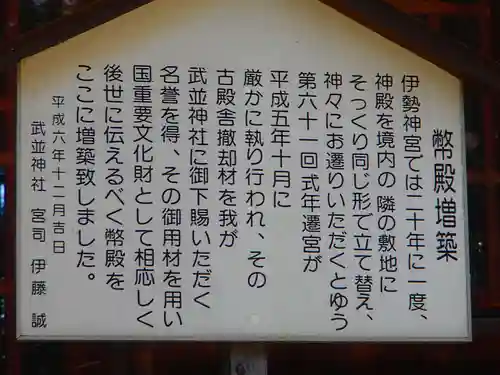 幣殿増築
伊勢神宮では二十年に一度、
神殿を境内の隣の敷地に
そっくり同じ形で立て替え、
神々にお遷りいただくとゆう
第六十一回式年遷宮が
平成五年十月に
厳かに執り行われ、その
古殿舎撤却材を我が
武並神社に御下賜いただく
名誉を得、その御用材を用い
国重要文化財として相応しく
後世に伝えるべく幣殿を
ここに増築致しました。
平成六年十二月吉日
武並神社 宮司 伊藤 誠